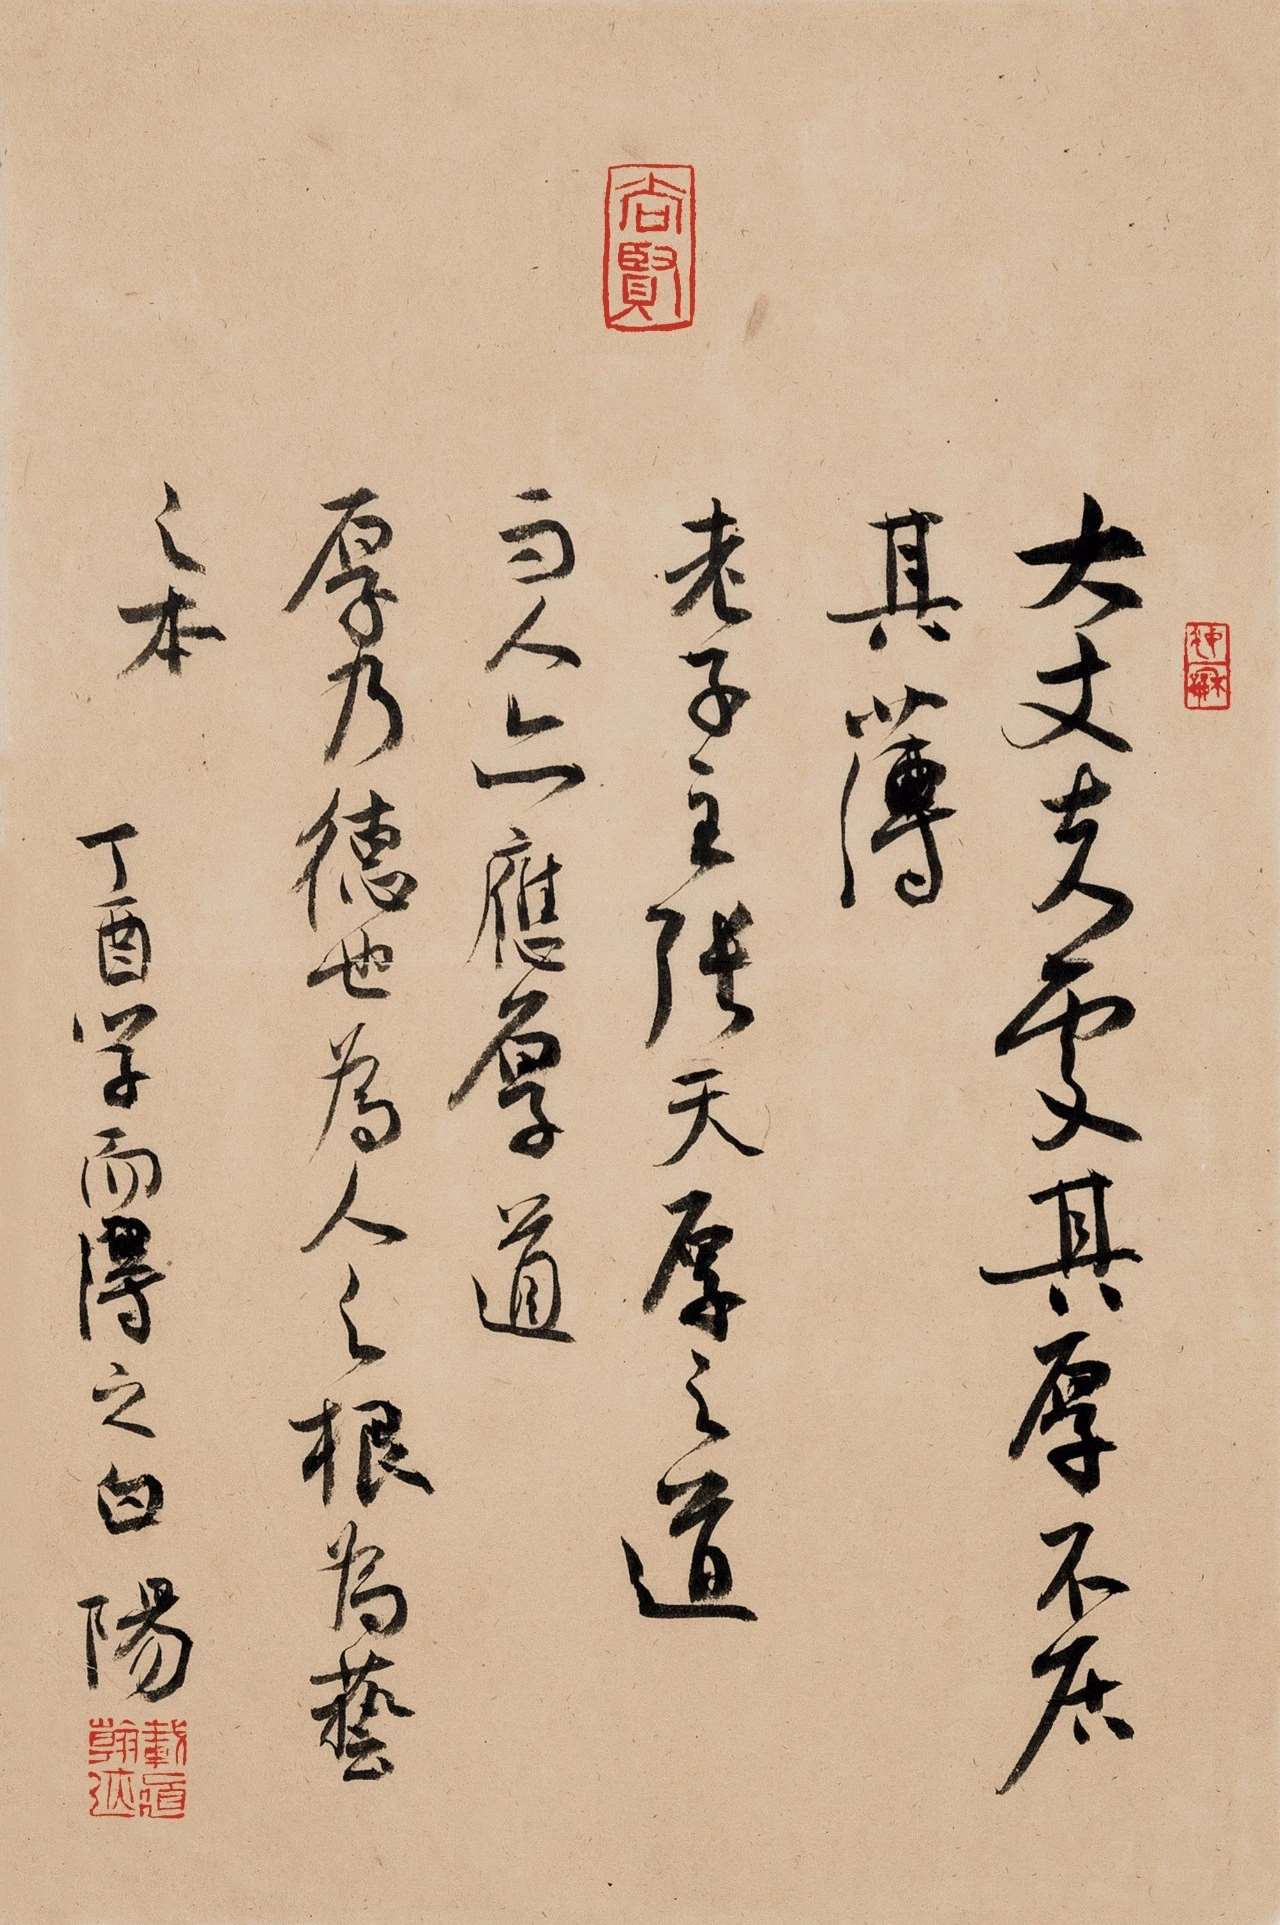 尚賢
大丈夫處其厚不居
其薄
老子主张天厚之道
而人亦應厚道
厚乃德也為人之根為藝
之本
丁酉学而得之白陽